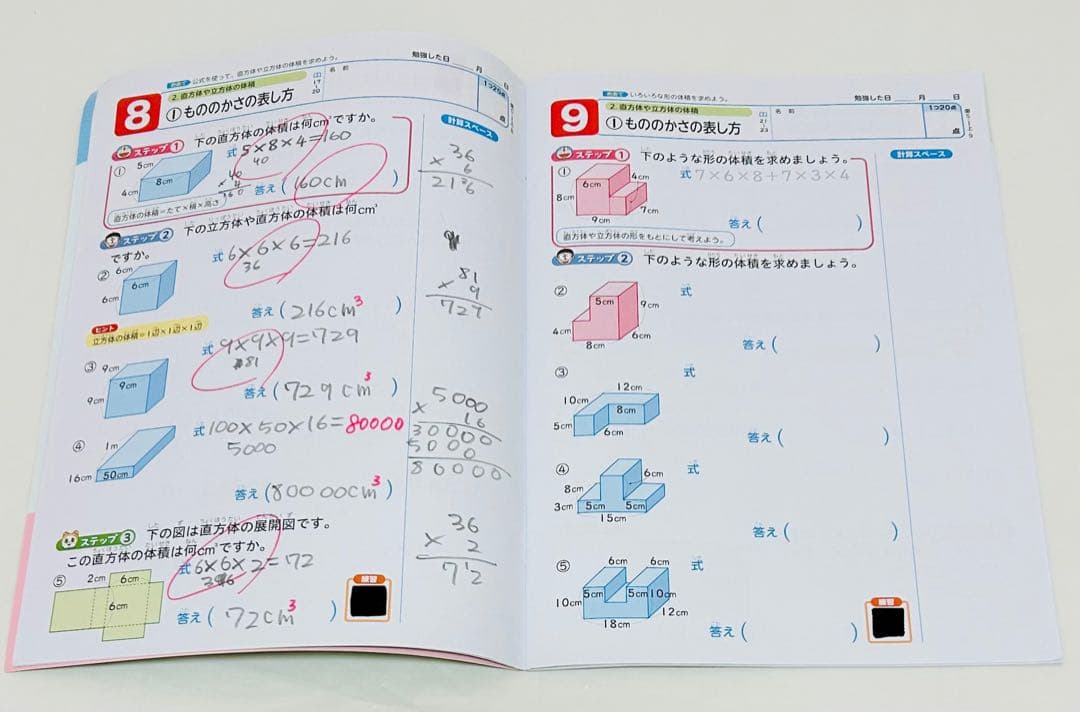 めあて 公式を使って、直方体や立方体の体積を求めよう。
勉強した日 月 日
8
2. 直方体や立方体の体積
①もののかさの表し方
名前
1つ20点
点
計算スペース
ステップ1 下の直方体の体積は何cm³ですか。
①
5cm
8cm
4cm
式 5×8×4=160
40
40
× 4
160
答え (160cm )
直方体の体積=たて×横×高さ
ステップ2 下の立方体や直方体の体積は何cm³
ですか。
②
6cm
6cm
6cm
式 6×6×6=216
36
答え (216cm³ )
ヒント
立方体の体積=1辺×1辺×1辺
③
9cm
9cm
9cm
式 9×9×9=729
81
答え (729cm³ )
④
1m
16cm
50cm
式 100×50×16=80000
5000
答え (80000cm³ )
ステップ3 下の図は直方体の展開図です。
この直方体の体積は何cm³ですか。
⑤
2cm
6cm
6cm
式 6×6×2=72
答え (72cm³ )
練習
36
× 6
216
81
× 9
727
5000
× 16
30000
5000
80000
36
× 2
72
めあて いろいろな形の体積を求めよう。
勉強した日 月 日
9
2. 直方体や立方体の体積
①もののかさの表し方
名前
1つ20点
点
計算スペース
ステップ1 下のような形の体積を求めましょう。
①
6cm
4cm
8cm
7cm
9cm
式 7×6×8+7×3×4
答え ( )
直方体や立方体の形をもとにして考えよう。
ステップ2 下のような形の体積を求めましょう。
②
5cm
9cm
4cm
6cm
8cm
式
答え ( )
③
12cm
10cm
8cm
5cm
6cm
式
答え ( )
④
6cm
8cm
3cm
5cm
5cm
15cm
式
答え ( )
⑤
6cm
6cm
5cm
5cm
10cm
10cm
12cm
18cm
式
答え ( )
練習